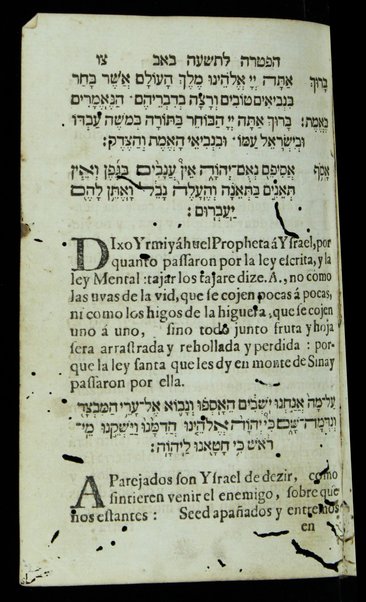 הפטרה לתשעה באב
צו
בָּרוּךְ אַתָּה יְיָ אֱלֹהֵינוּ מֶלֶךְ הָעוֹלָם אֲשֶׁר בָּחַר
בִּנְבִיאִים טוֹבִים וְרָצָה בְדִבְרֵיהֶם הַנֶּאֱמָרִים
בֶּאֱמֶת: בָּרוּךְ אַתָּה יְיָ הַבּוֹחֵר בַּתּוֹרָה בְּמשֶׁה עַבְדּוֹ
וּבְיִשְׂרָאֵל עַמּוֹ וּבִנְבִיאֵי הָאֱמֶת וְהַצֶּדֶק:
אָסֹף אֲסִיפֵם נְאֻם־יְהוָֹה אֵין עֲנָבִים בַּגֶּפֶן וְאֵין
תְּאֵנִים בַּתְּאֵנָה וְהֶעָלֶה נָבֵל וָאֶתֵּן לָהֶם
יַעַבְרוּם:
DIxo Yrmiyáhu el Propheta á Ysrael, por
quanto passaron por la ley escrita, y la
ley Mental : tajar los tajare dize. A., no como
las uvas de la vid, que se cojen pocas á pocas,
ni como los higos de la higuera, que se cojen
uno á uno, sino todo junto fruta y hoja
sera arrastrada y rehollada y perdida : por-
que la ley santa que les dy en monte de Sinay
passaron por ella.
עַל־מָה אֲנַחְנוּ יֹשְׁבִים הֵאָסְפוּ וְנָבוֹא אֶל־עָרֵי הַמִּבְצָר
וְנִדְּמָה־שָּׁם כִּי יְהוָֹה אֱלֹהֵינוּ הֲדִמָּנוּ וַיַּשְׁקֵנוּ מֵי־
רֹאשׁ כִּי חָטָאנוּ לַיהוָֹה:
APparejados son Ysrael de dezir, como
sintieren venir el enemigo, sobre que
nos estantes : Seed apañados y entremos
en